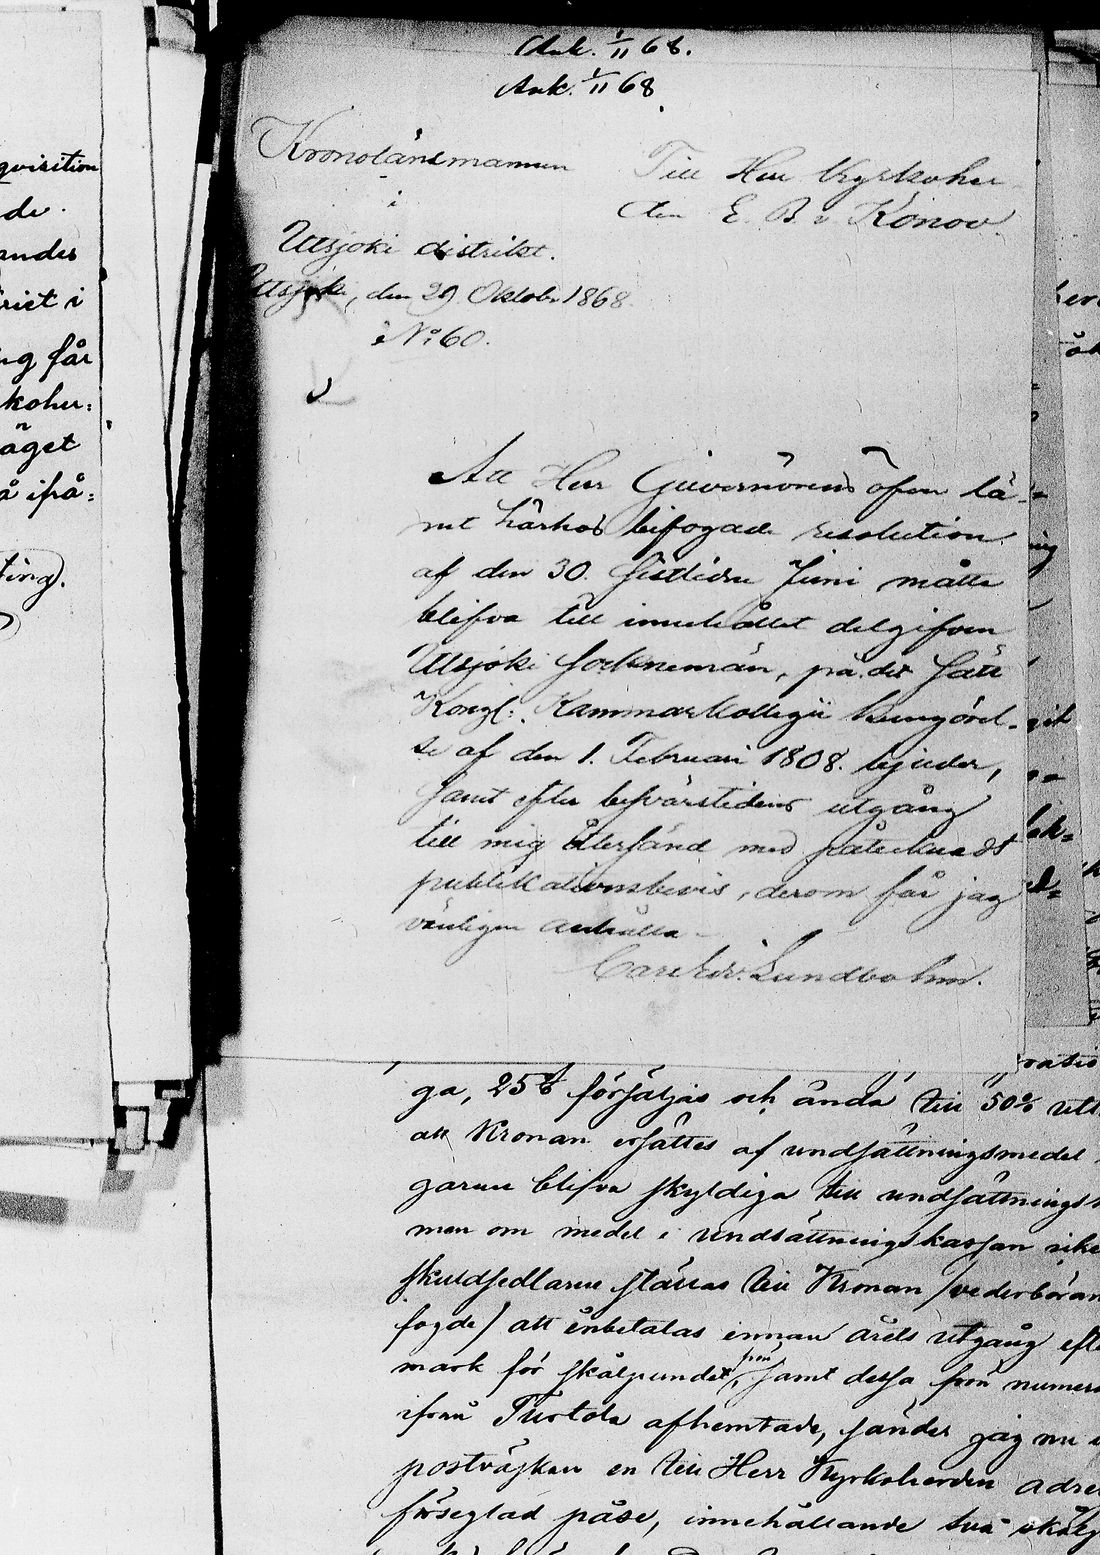 qvisition
de.
andes
rist i
ng får
koher=
äget
å ifrå=
ting).
Ank. 1/11 68.
Ank. 1/11 68
Kronolänsmannen
i
Utsjoki distrikt.
Utsjoki, den 29 Oktober 1868.
No 60.
Till Herr Kyrkoher-
den E. B. v. Konow.
Att Herr Guvernörens öfver lä-
net härhos bifogade resolution
af den 30. sistlidne Juni måtte
blifva till innehållet delgifven
Utsjoki sockenemän, på det sätt
Kongl: Kammarkollegii kungörel-
se af den 1. Februari 1808. bjuder,
samt efter besvärstidens utgång
till mig återsänd med påtecknadt
publikationsbevis, derom får jag
vänligen anhålla-
Carl Edv. Lundbohm.
ga, 25 % försäljas och ända till 50 % utt
att Kronan ersättes af undsättningsmedel
garne blifva skyldiga till undsättnings
men om medel i undsättningskassan icke
skuldsedlarne ställas till Kronan (vederböran
fogde) att inbetalas innan årets utgång efte
mark för skålpundet, samt dessa frön numera
ifrån Turtola afhemtade, sänder jag nu
postväskan en till Herr Kyrkoherden adre
förseglad påse, innehållande två skålp